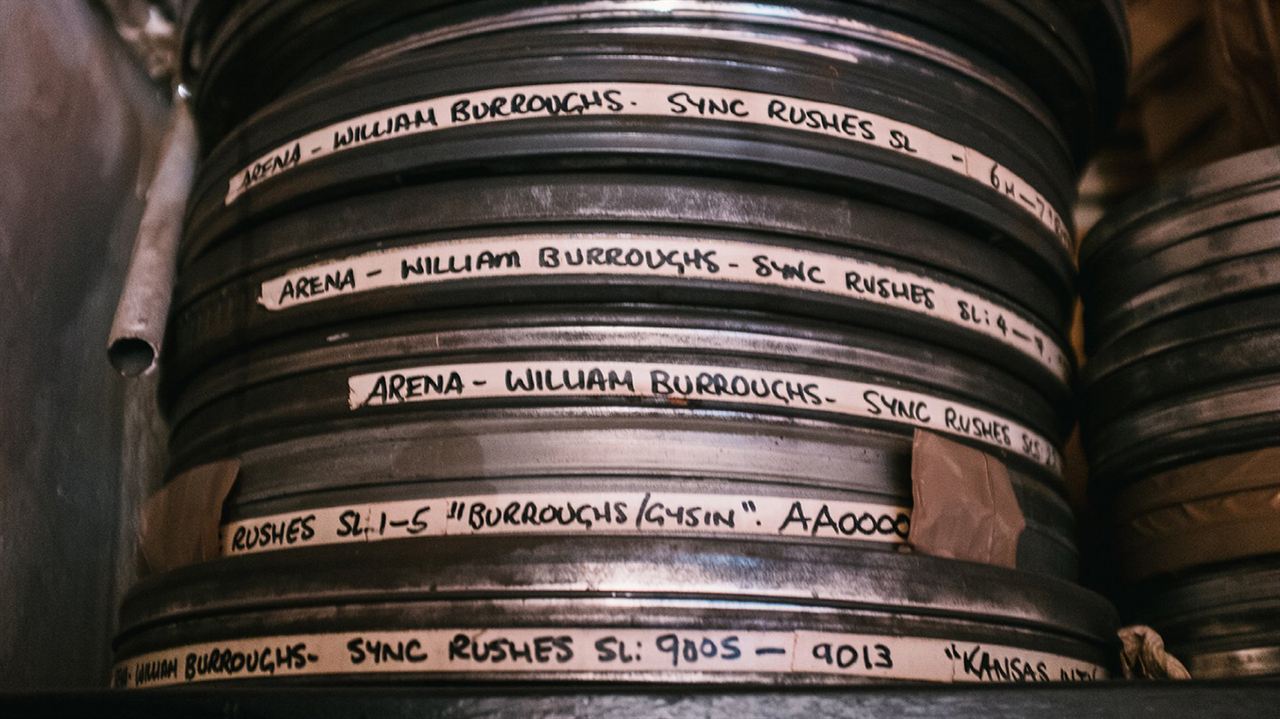 ARENA - WILLIAM BURROUGHS. SYNC RUSHES SL - 6H-7
ARENA - WILLIAM BURROUGHS - SYNC RUSHES SL: 4 -
ARENA - WILLIAM BURROUGHS - SYNC RUSHES SLS
RUSHES SL: 1-5 "BURROUGHS/GYSIN". AA0000
WILLIAM BURROUGHS- SYNC RUSHES SL: 9005 - 9013 "KANSAS